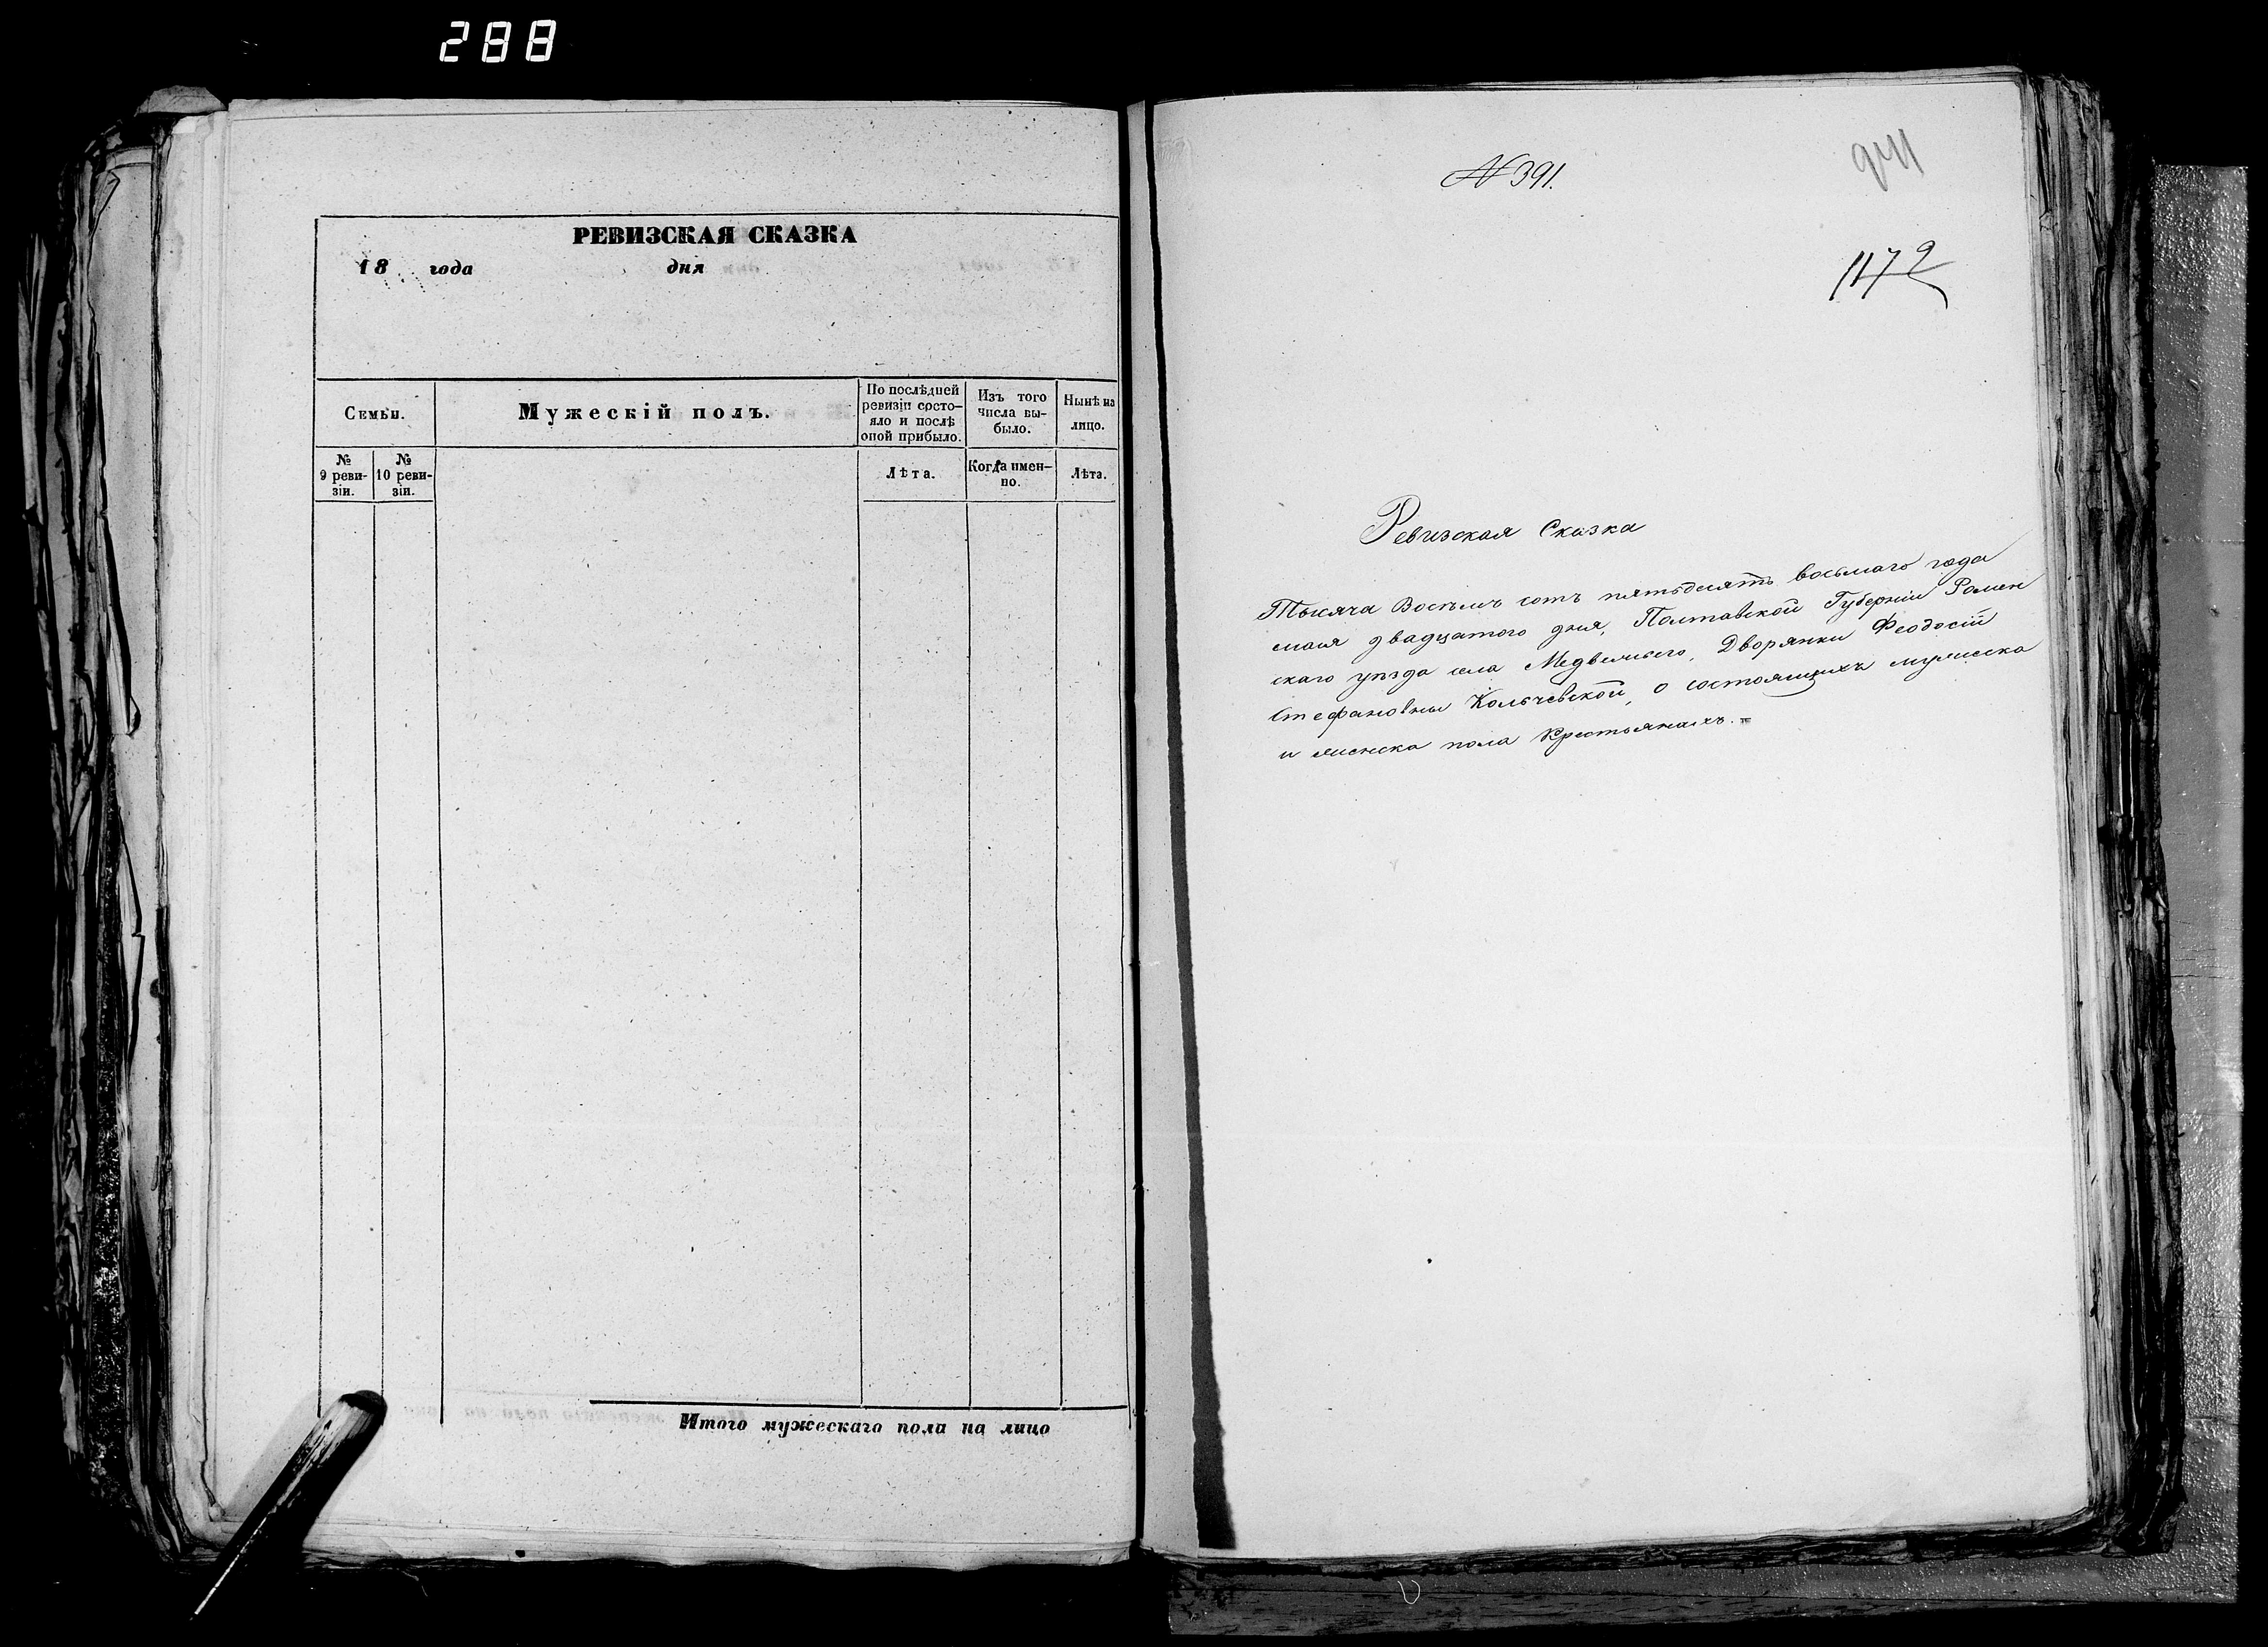 288
РЕВИЗСКАЯ СКАЗКА
18 года дня
Семьи.
Мужескій полъ.
По послѣдней
ревизіи состо-
яло и послѣ
оной прибыло.
Изъ того
числа вы-
было.
Нынѣ на
лицо.
№
9 реви-
зіи.
№
10 реви-
зіи.
Лѣта.
Когда имен-
но.
Лѣта.
Итого мужескаго пола на лицо
№ 391.
941
1172
Ревизская Сказка
Тысяча Восемь сотъ пятьдесятъ восьмаго года
мая двадцатого дня, Полтавской Губерніи Ромен
скаго уѣзда села Медвежьего, Дворянки Феодосіи
Стефановны Кольчевской, о состоящихъ мужеска
и женска пола Крестьянахъ.